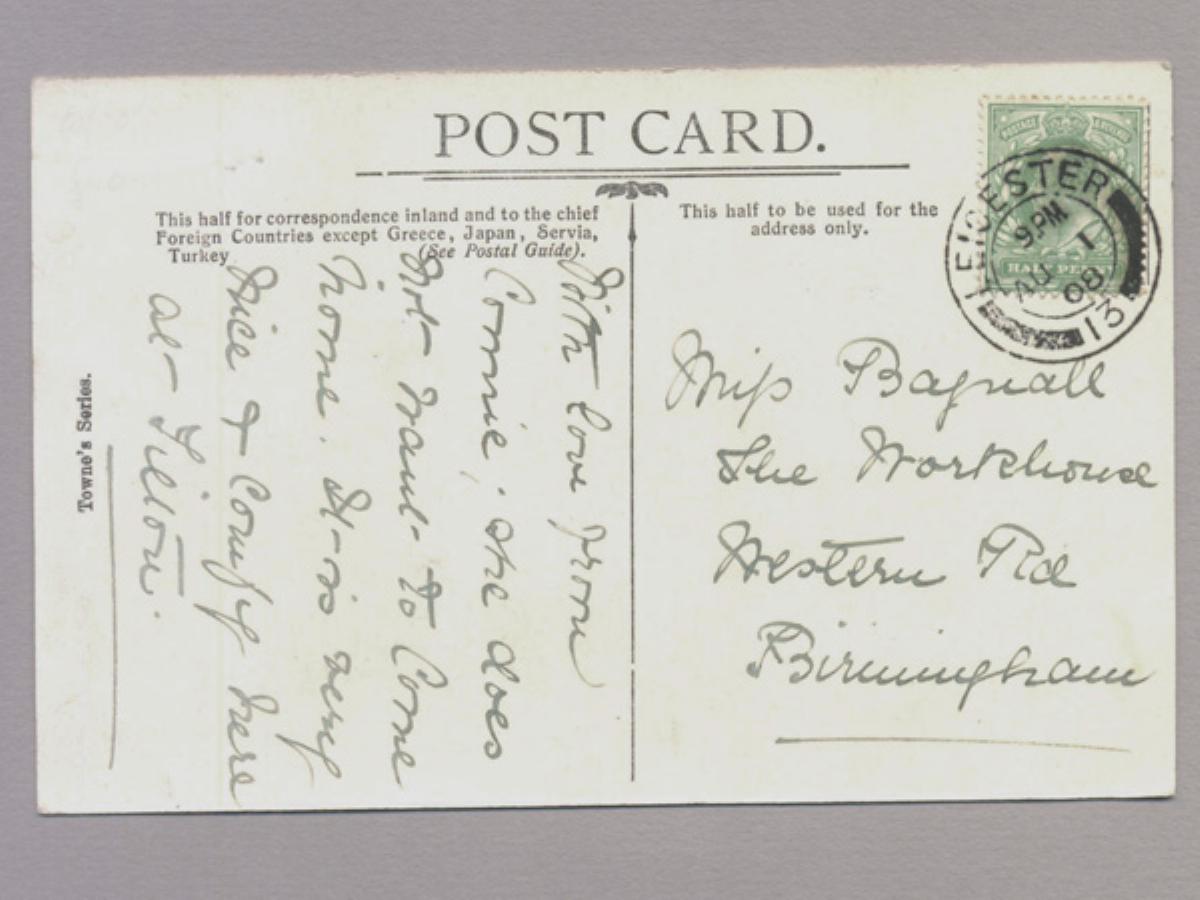 POST CARD.
This half for correspondence inland and to the chief
Foreign Countries except Greece, Japan, Servia,
Turkey (See Postal Guide).
This half to be used for the
address only.
POSTAGE
LEICESTER
9.PM
AU 1
08
13
HALF PENNY
With love from
Connie, she does
not want to Come
home. It is very
Nice & Comfy here
at Tilton.
Miss Bagnall
The Workhouse
Western Rd
Birmingham
Towne's Series.